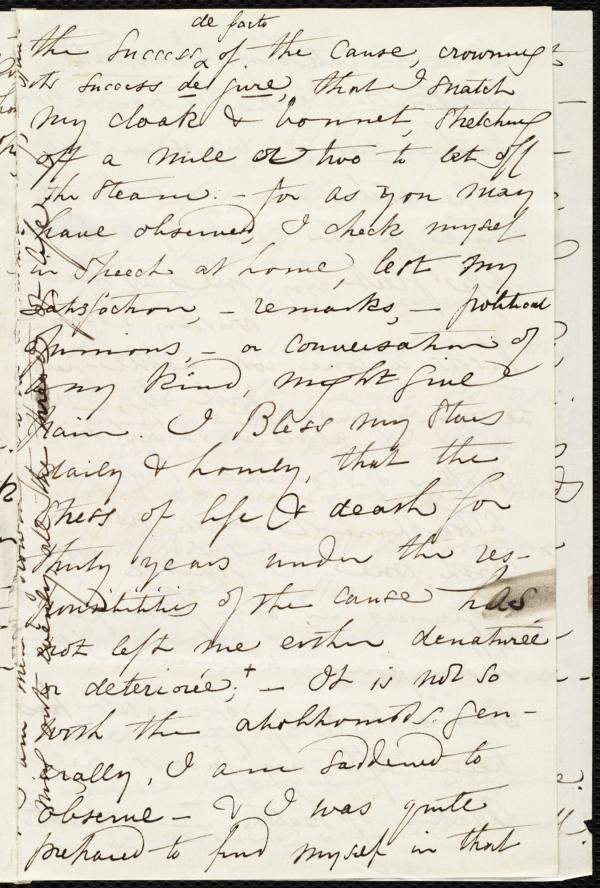 de facto
the success ^ of the cause, crowning
its success de jure, that I snatch
my cloak & bonnet, stretching
off a mile or two to let off
the steam: – for as you may
have observed, I check myself
in speech at home, lest my
satisfaction, – remarks, – political
opinions, – or conversation of
any kind, might give
pain. I Bless my stars
daily & hourly, that the
stress of life & death for
thirty years under the res-
ponsibilities of the cause has
not left me either denaturée
or deteriorée;+ – It is not so
with the abolitionists gen-
erally, I am saddened to
observe – & I was quite
prepared to find myself in that